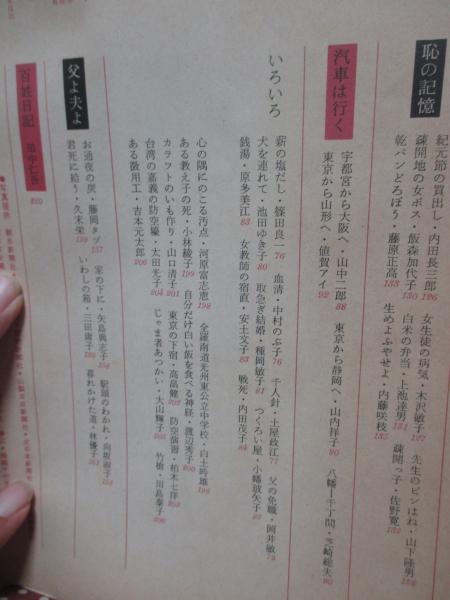 恥の記憶
紀元節の買出し・内田長三郎 126 女生徒の病気・木沢敏子 127 先生のピンはね・山下隆男 128
疎開地の女ボス・飯森加代子 130 白米の弁当・上池達男 131 疎開っ子・佐野寛 132
乾パンどろぼう・藤原正高 133 生めよふやせよ・内藤咲枝 135
汽車は行く
宇都宮から大阪へ・山中二郎 88 東京から静岡へ・山内祥子 90 八幡―千丁間・芝崎総夫 90
東京から山形へ・値賀アイ 92
いろいろ
薪の塩だし・篠田良一 76 血清・中村のぶ子 76 千人針・土屋政江 77 父の免職・岡井敏 79
犬を連れて・池田ゆき子 80 取急ぎ結婚・種岡敏子 81 つくろい屋・小幡玻矢子 82
銭湯・原多美江 83 女教師の宿直・安土文子 83 戦死・内田茂子 84
心の隅にのこる汚点・河原富志恵 198 全羅南道光州東公立中学校・白土時雄 198
ある教え子の死・小林綾子 199 自分だけ白い飯を食べる神経・渡辺秀子 200
カラフトのいも作り・山口清子 201 東京の下宿・高畠健 202 防空演習・柏木七洋 203
台湾の嘉義の防空壕・太田光子 204 じゃま者あつかい・大山輝子 205 竹槍・川島泰子 206
ある徴用工・吉本元太郎 206
父よ夫よ
お通夜の炭・藤岡タブ 157 家の下に・矢島興志子 158 駅頭のわかれ・向坂淑子 158
君死に給う・久米栄 159 いわしの箱・三田庸子 159 暮れかけた道・林優子 161
百姓日記 田中仁吾 250
●写真提供